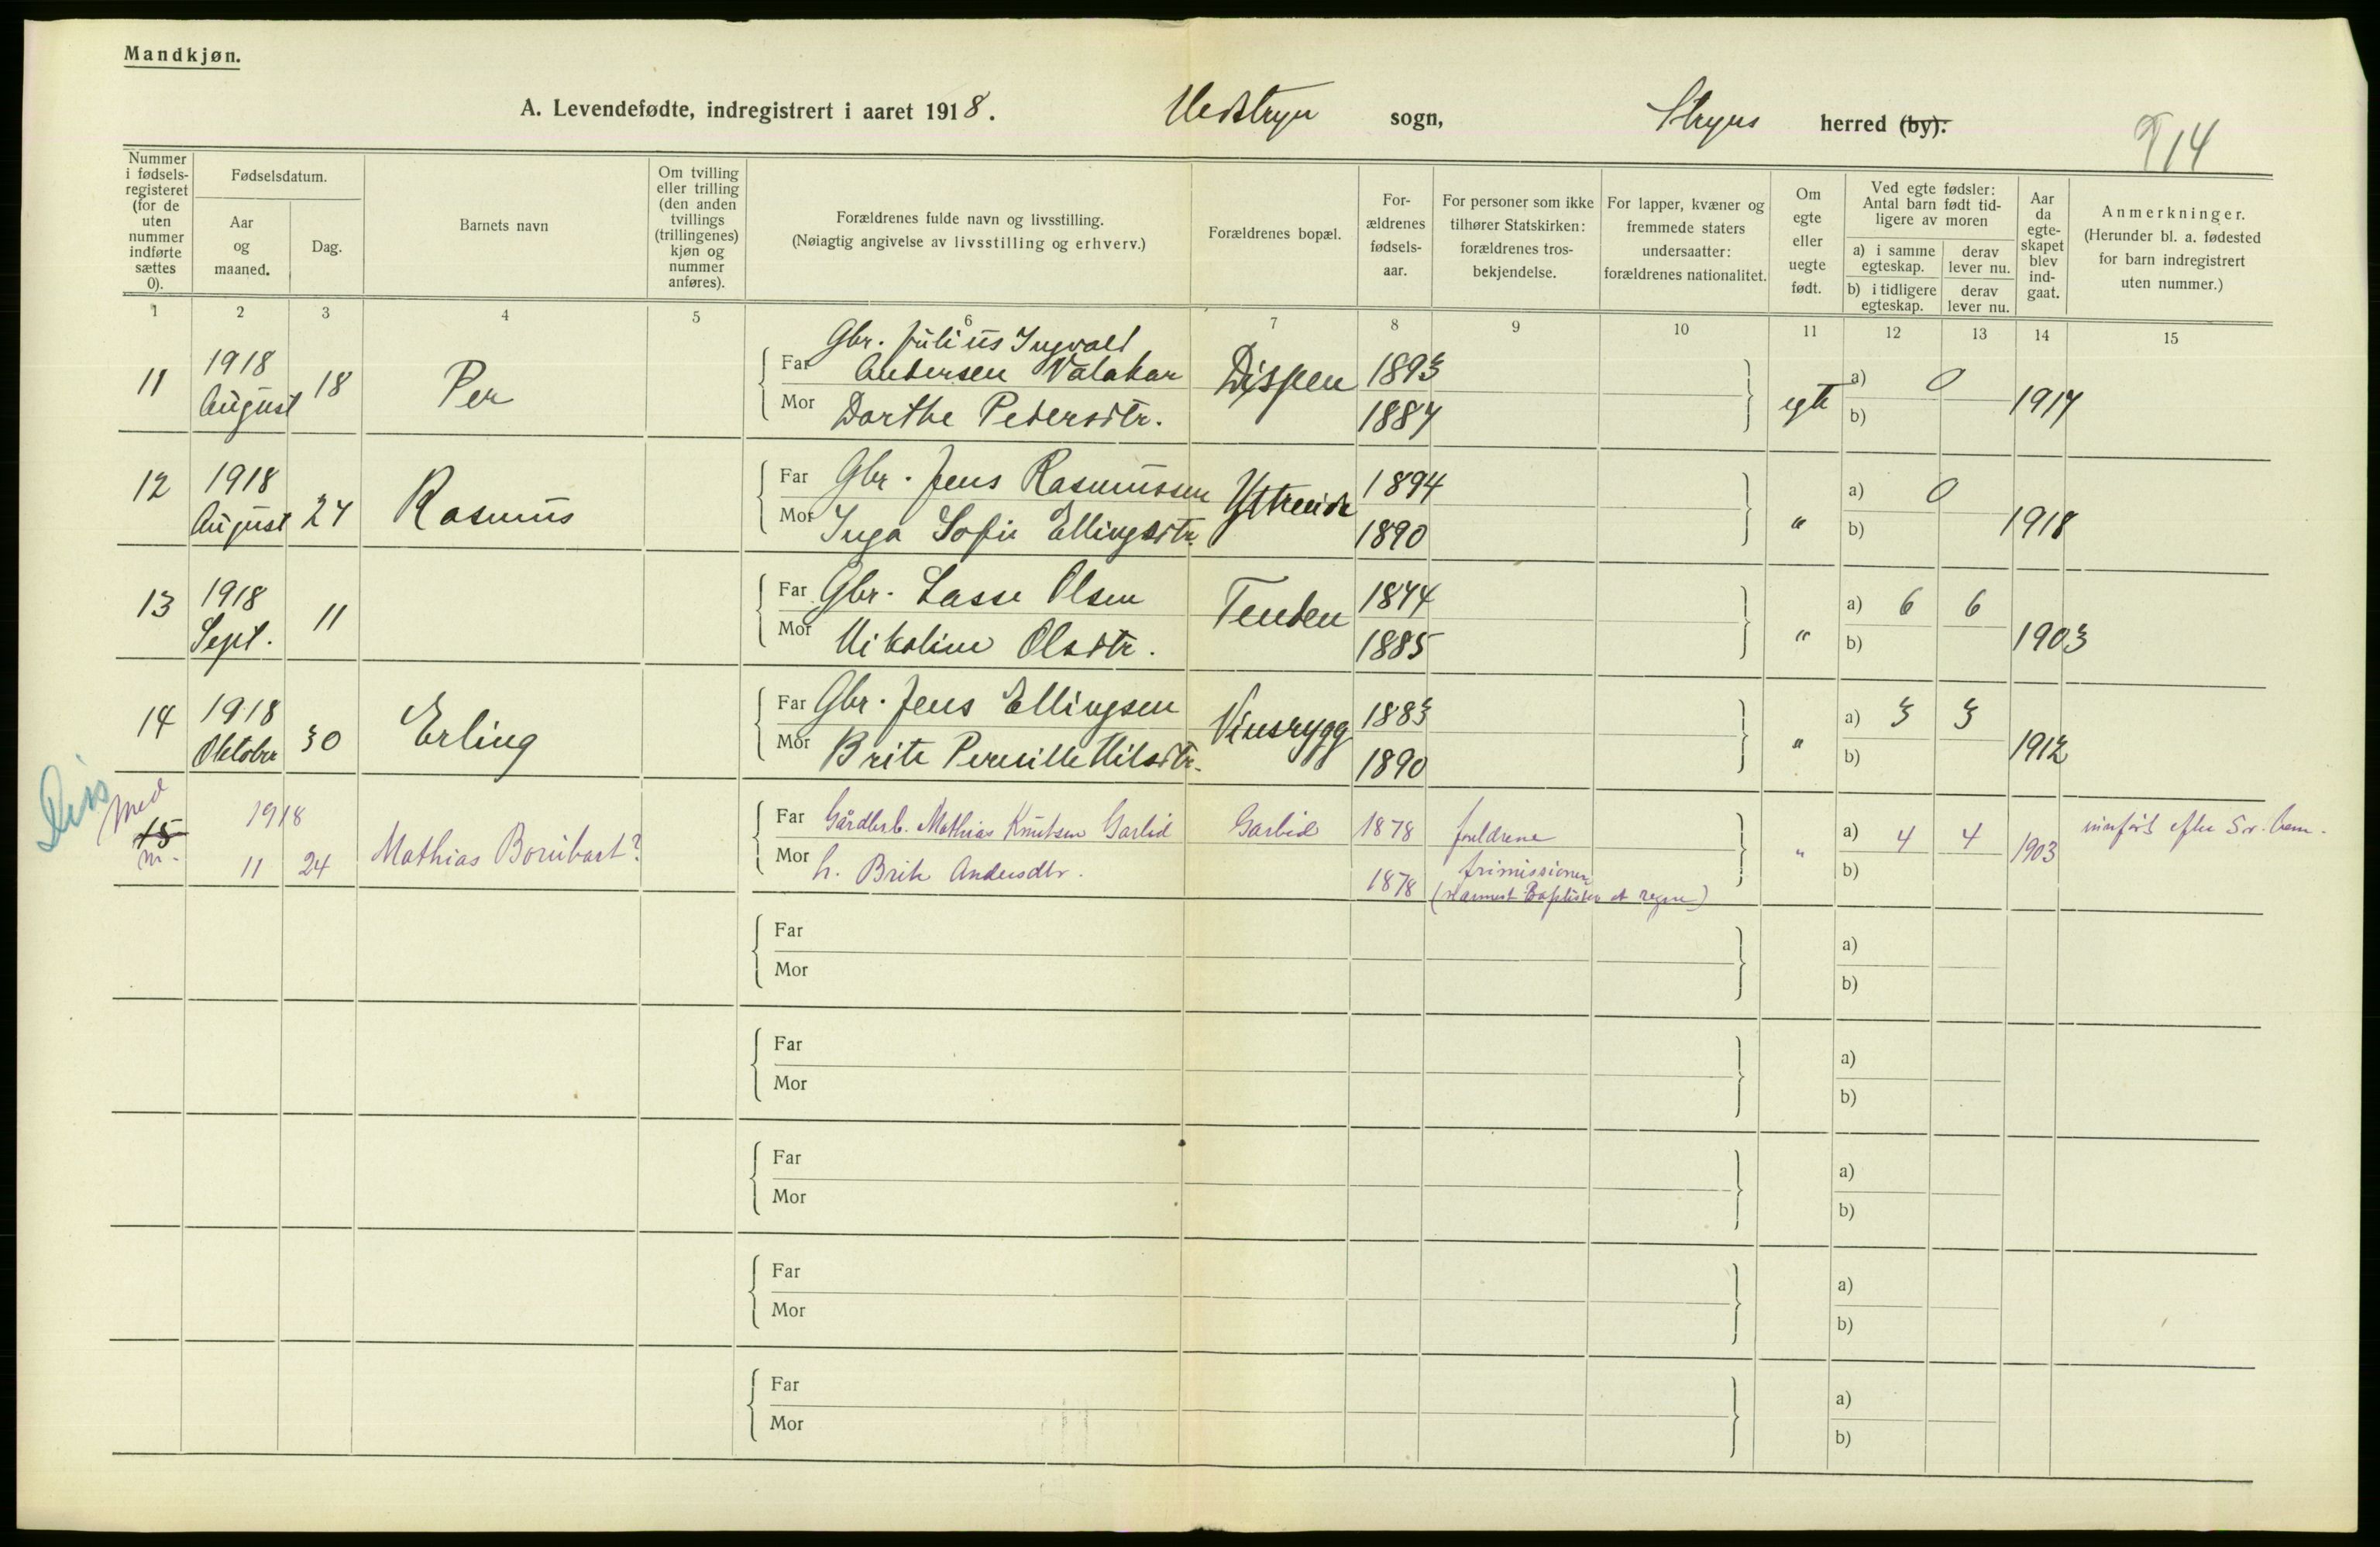 Mandkjøn.
A. Levendefødte, indregistrert i aaret 1918. Nedstryn sogn, Stryns herred (by).
914
Nummer i fødselsregisteret (for de uten nummer indførte sættes 0).
Fødselsdatum.
Aar og maaned.
Dag.
Barnets navn
Om tvilling eller trilling (den anden tvillings (trillingenes) kjøn og nummer anføres).
Forældrenes fulde navn og livsstilling.
(Nøiagtig angivelse av livsstilling og erhverv.)
Forældrenes bopæl.
Forældrenes fødselsaar.
For personer som ikke tilhører Statskirken: forældrenes trosbekjendelse.
For lapper, kvæner og fremmede staters undersaatter: forældrenes nationalitet.
Om egte eller uegte født.
Ved egte fødsler: Antal barn født tidligere av moren
a) i samme egteskap. derav lever nu.
b) i tidligere egteskap. derav lever nu.
Aar da egteskapet blev indgaat.
Anmerkninger.
(Herunder bl. a. fødested for barn indregistrert uten nummer.)
1 2 3 4 5 6 7 8 9 10 11 12 13 14 15
11 1918 August 18 Per
Far Gbr. Julius Ingvald Andersen Valaker Dispen 1893
Mor Dorthe Pedersdtr. 1887
egte a) 0 b) 1917
12 1918 August 24 Rasmus
Far Gbr. Jens Rasmussen Ytreeide 1894
Mor Inga Sofie Ellingsdtr. 1890
" a) 0 b) 1918
13 1918 Sept. 11
Far Gbr. Lasse Olsen Tenden 1877
Mor Nikoline Olsdtr. 1885
" a) 6 6 b) 1903
14 1918 Oktober 30 Erling
Far Gbr. Jens Ellingsen Vinsrygg 1883
Mor Brite Pernille Nilsdtr. 1890
" a) 3 3 b) 1912
Diss
Med
15
m.
1918 11 24 Mathias Bornibart?
Far Gårdbr. Mathias Knutsen Garlid Garlid 1878 foreldrene
Mor h. Brite Andersdtr. 1878 frimissionen
(nærmest Baptister at regne)
" a) 4 4 b) 1903 innført efter Sv. hem.
Far
Mor
a)
b)
Far
Mor
a)
b)
Far
Mor
a)
b)
Far
Mor
a)
b)
Far
Mor
a)
b)